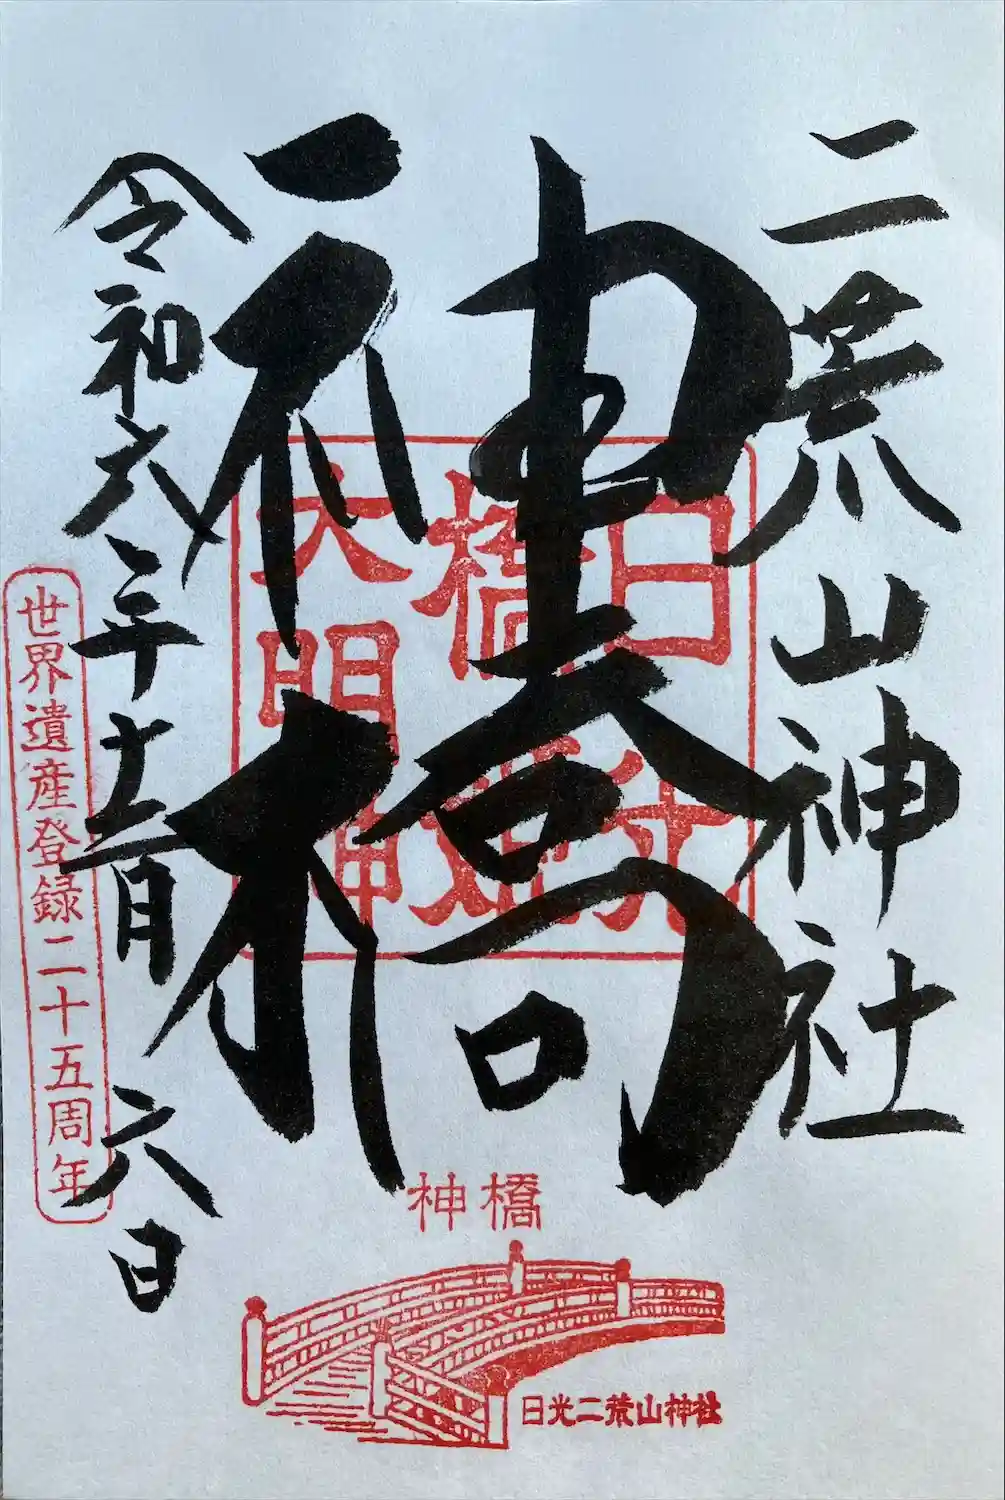 二荒山神社
神橋
日光
橋姫
大明神
令和六年十二月六日
世界遺産登録二十五周年
神橋
日光二荒山神社